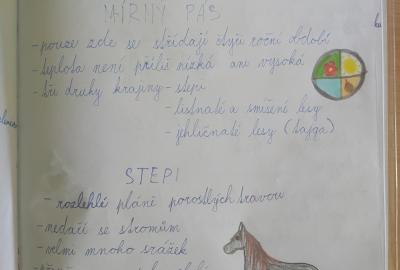 MÍRNÝ PÁS
- pouze zde se střídají čtyři roční období
- teplota není příliš nízká ani vysoká
- tři druhy krajiny - stepi
- listnaté a smíšené lesy
- jehličnaté lesy (tajga)
STEPI
- rozlehlé pláně porostlých travou
- nedaří se stromům
- velmi mnoho srážek